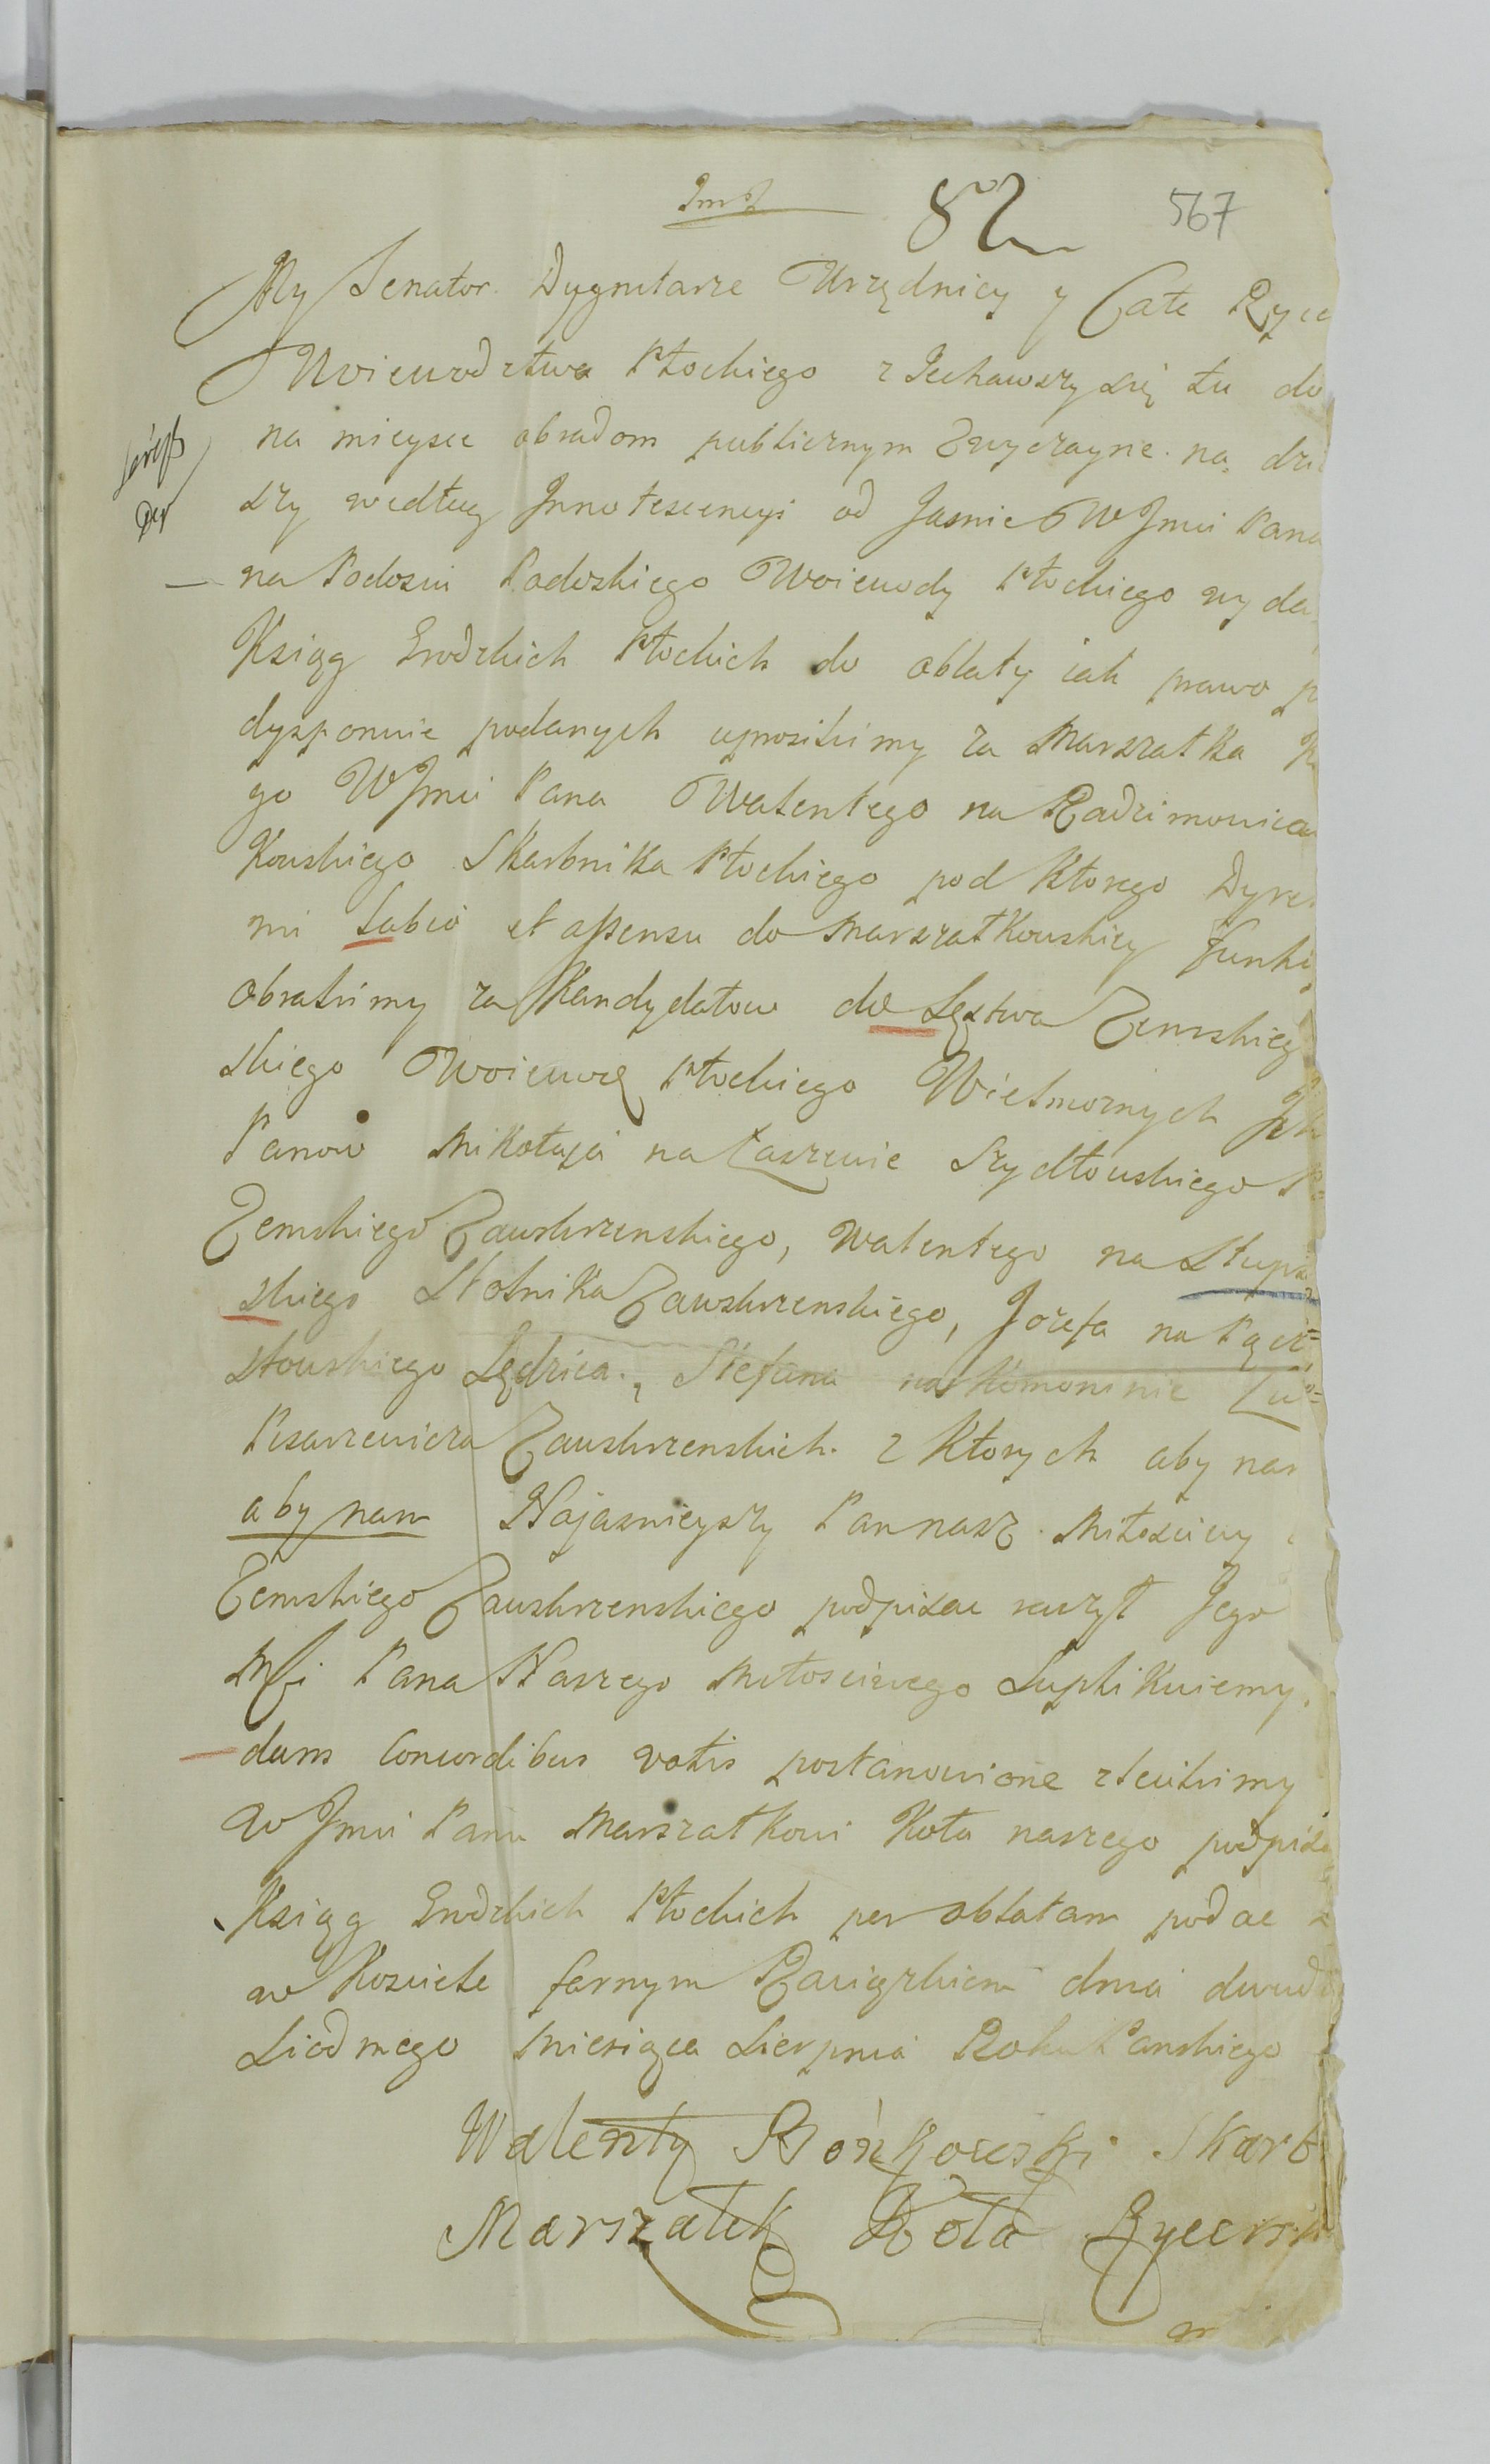 82 567
My Senator. Dygnitarze Urzędnicy y Całe Ryce
Woiewodztwa Płockiego zJechawszy się tu do
na mieysce obradom publicznym Zwyczayne. na dzi
szy według Innotescencyi od Jasnie W Jmci Pana
na Podosiu Podoskiego Woiewody Płockiego wyda
Ksiąg Grodzkich Płockich do oblaty iak prawo p
dysponuie podanych uprosilismy za Marszałka K
go WJmci Pana Walentego na Radzimowica
Kowskiego Skarbnika Płockiego pod Ktorego Dyre
mi Sabio et assensu do Marszałkowskiey Funkcy
obralismy za Kandydatow do Sęstwa Zemskieg
skiego Woiewo Płockiego Wielmoznych
Panow Mikołaja na Łaszewie Szydłowskiego
Zemskiego Zawskrzenskiego, Walentego na Słup
skiego Stolnika Zawskrzenskiego, Jozefa na Pącz=
stowskiego Sędzica., Stefana na Komoninie
Pisarzewicza Zawskrzenskich. z Ktorych aby nam
aby nam Najasnieyszy Pan nasz Miłosciwy
Zemskiego Zawskrzenskiego podpisac raczył Jego
Mci Pana Naszego Miłosciwego Suplikuiemy.
dum Concordibus votis postanowione zlecilismy
W Jmci Panu Marszałkowi Koła naszego podpisa
Ksiąg Grodzkich Płockich per oblatam podac
w Kosciele farnym Raciązkiem dnia dwud
Siodmego Miesiąca Sierpnia Roku Panskiego
Walenty Bońkowski Skarb
Marszałek Koła Rycersk